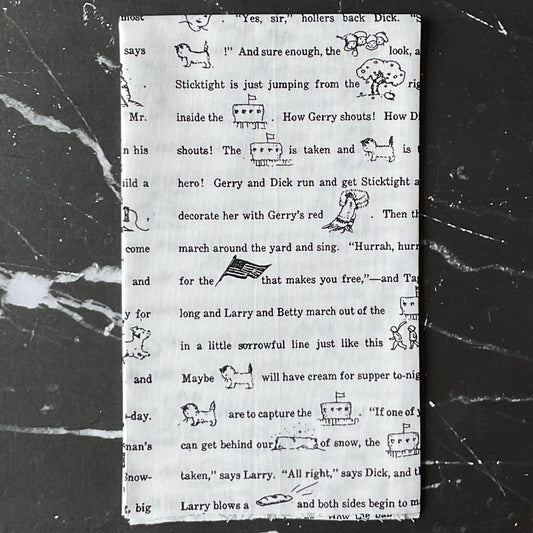 most . "Yes, sir," hollers back Dick. "S
says !" And sure enough, the look, a
Sticktight is just jumping from the rig
Mr. inside the . How Gerry shouts! How Di
n his shouts! The is taken and is t
uild a hero! Gerry and Dick run and get Sticktight a
, decorate her with Gerry's red . Then th
come march around the yard and sing. "Hurrah, hurr
and for the that makes you free,"—and Tag
y for long and Larry and Betty march out of the
in a little sorrowful line just like this
and Maybe will have cream for supper to-nig
-day. are to capture the . "If one of y
man's can get behind our of snow, the
Snow- taken," says Larry. "All right," says Dick, and th
, big Larry blows a and both sides begin to ma